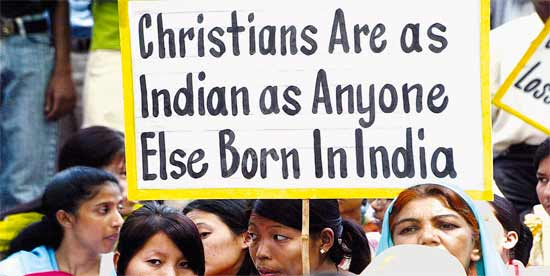 Christians Are as
Indian as Anyone
Else Born In India
Loss